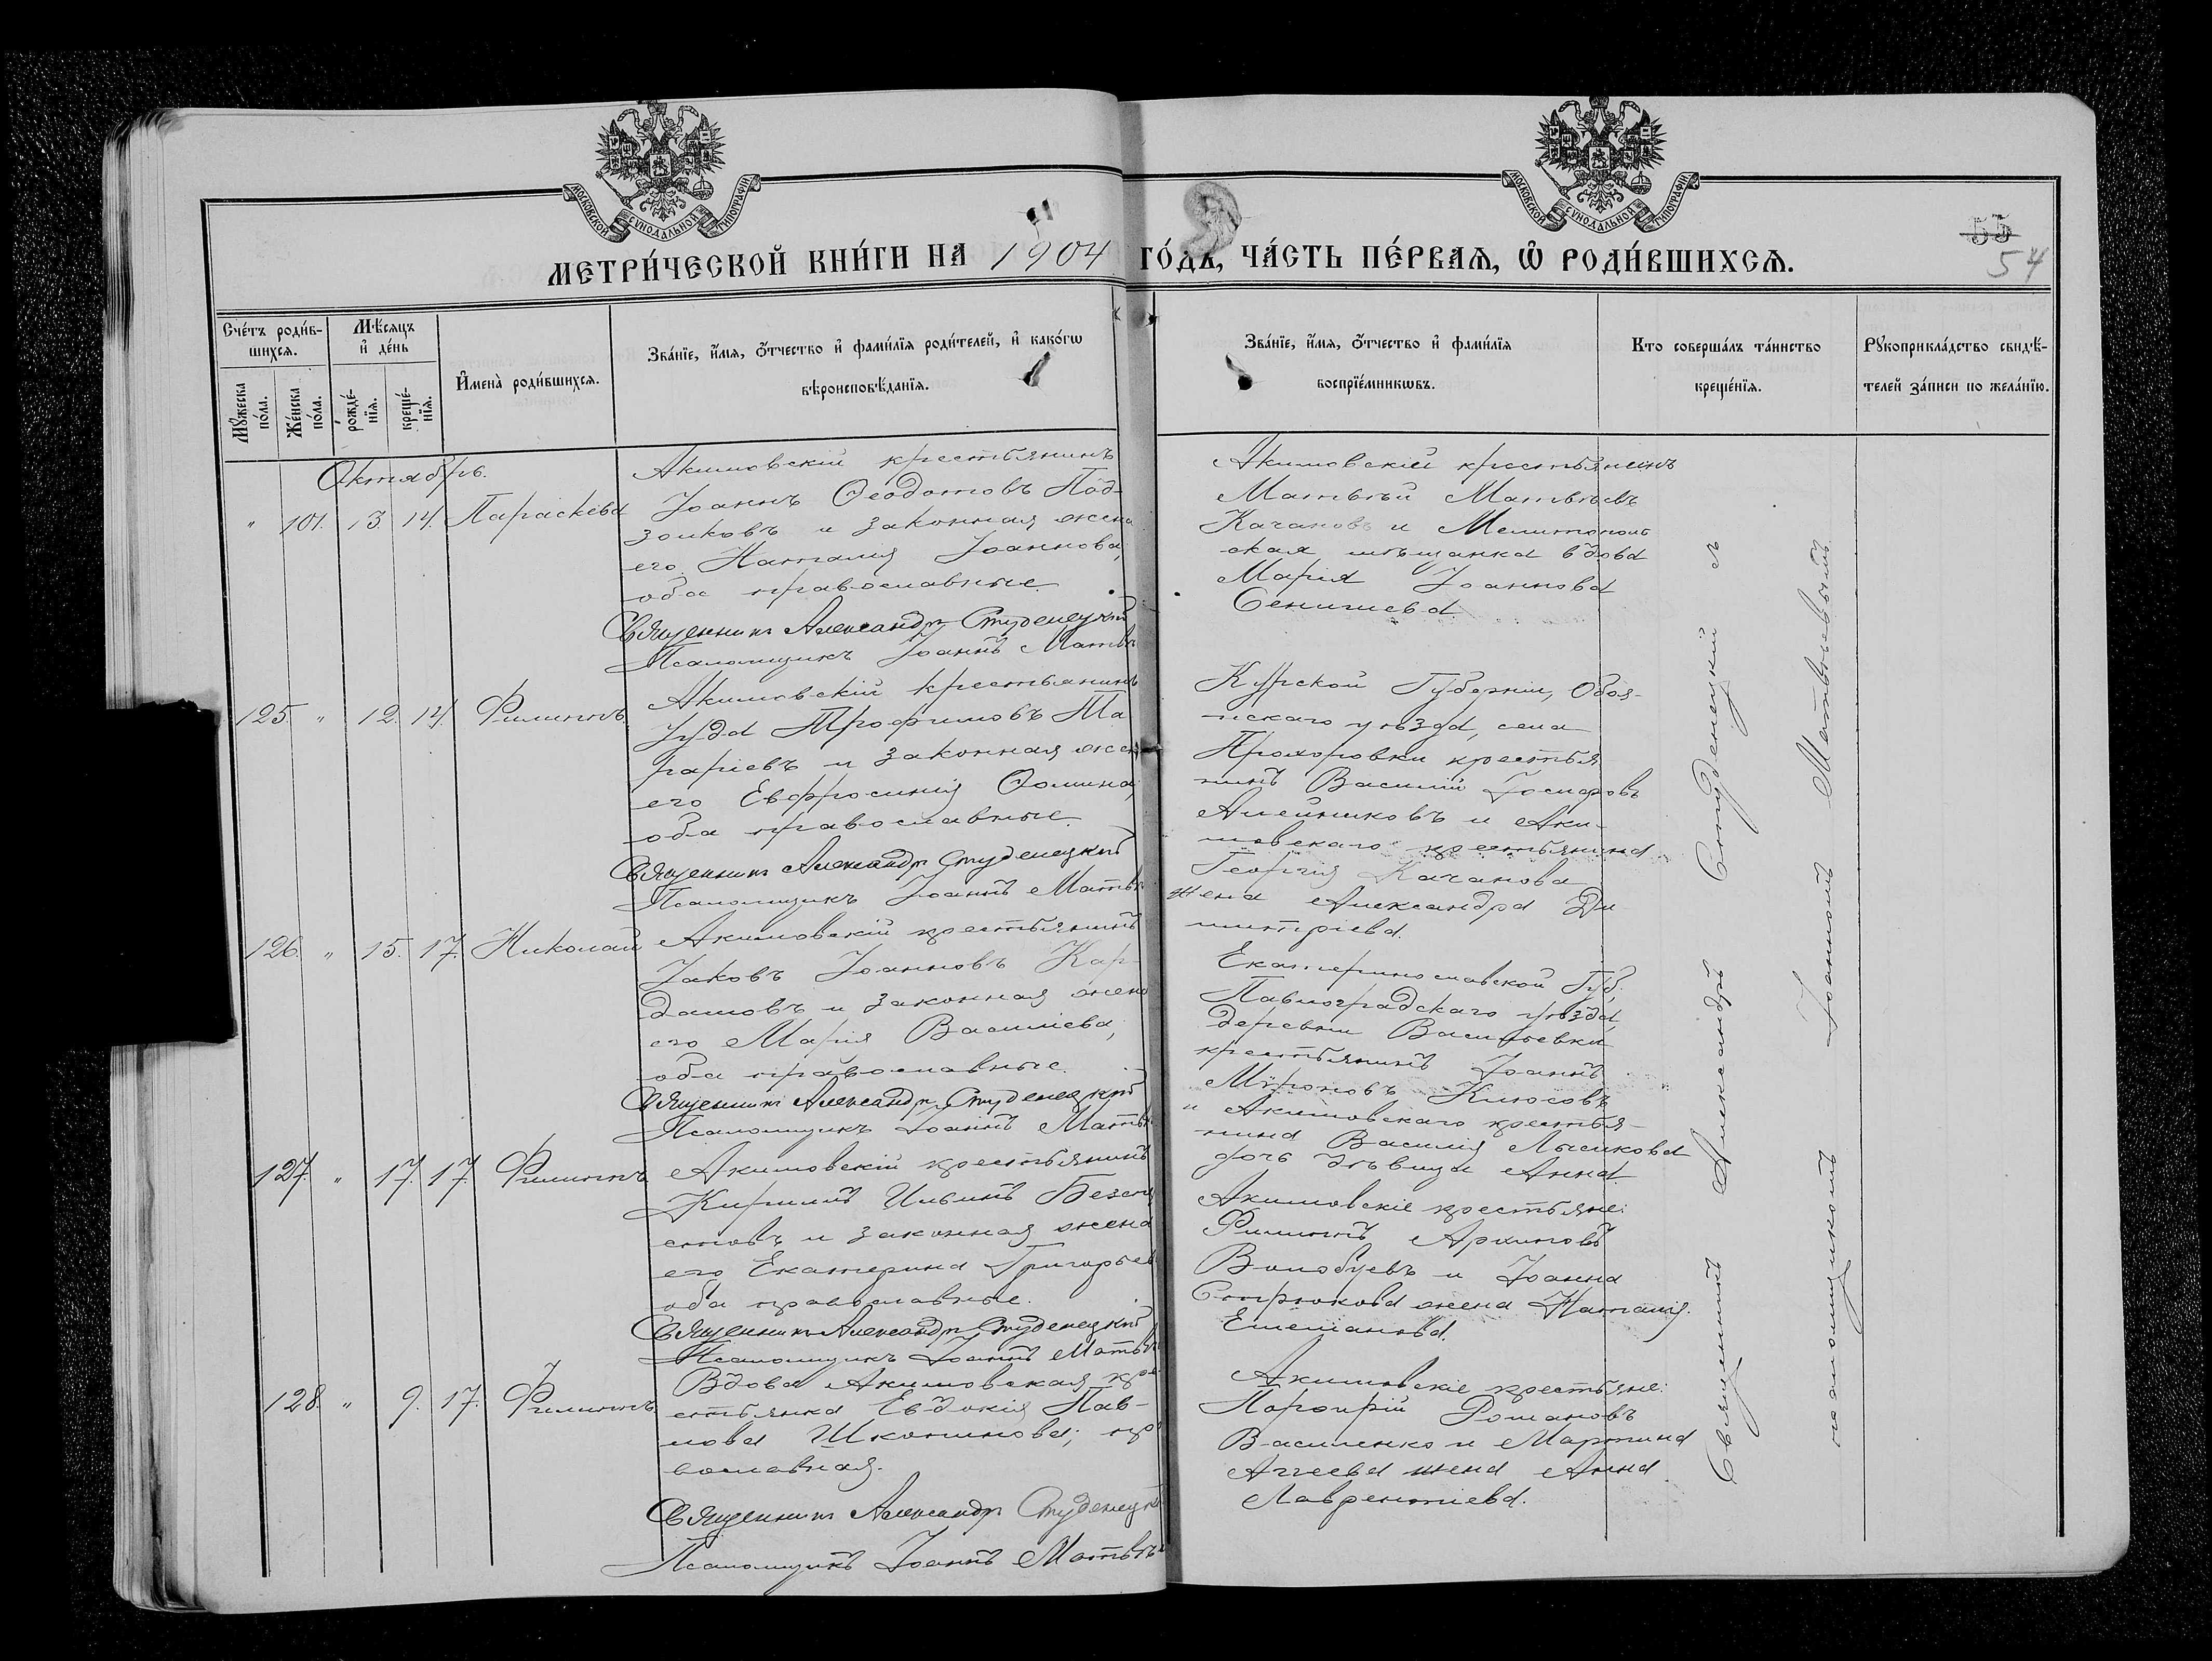 МОСКОВСКОЙ СУНОДАЛЬНОЙ ТИПОГРАФІИ
МОСКОВСКОЙ СУНОДАЛЬНОЙ ТИПОГРАФІИ
МЕТРИ́ЧЕСКОЙ КНИ́ГИ НА 1904 ГО́ДЪ, ЧА́СТЬ ПЕ́РВАѦ, Ѡ РОДИ́ВШИХСѦ.
55
54
Сче́тъ роди́в-
шихсѧ.
Мѣ́сяцъ
и де́нь
Мꙋ́жеска
по́ла.
Же́нска
по́ла.
рожде́-
нїѧ.
креще́-
нїѧ.
И҆мена̀ роди́вшихсѧ.
Зва́нїе, и҆́мѧ, ѻ҆́тчество и҆ фами́лїѧ роди́телей, и҆ како́гѡ
вѣроисповѣ́данїѧ.
Зва́нїе, и҆́мѧ, ѻ҆́тчество и҆ фами́лїѧ
воспрїе́мникѡвъ.
Кто соверша́лъ та́инство
креще́нїѧ.
Рꙋкоприкла́дство свидѣ́-
телей за́писи по жела́нїю.
Октябрь.
" 101. 13 14. Параскева
Акимовскій крестьянинъ
Іоаннъ Ѳеодотовъ Под-
золковъ и законная жена
его Наталія Іоаннова,
оба православные.
Священникъ Александръ Студенецкій
Псаломщикъ Іоаннъ Матвѣ
Акимовскій крестьянинъ
Матвѣй Матвѣевъ
Качановъ и Мелитополь
ская мѣщанка вдова
Марія Іоаннова
Сенишева
125. " 12. 14. Филиппъ
Акимовскій крестьянинъ
Іуда Трофимовъ
и законная жен
его Евфросинія Ѳомина,
оба православные.
Священникъ Александръ Студенецкій
Псаломщикъ Іоаннъ Матвѣ
Курской Губерніи, Обоя-
нскаго уѣзда, села
Прохоровки крестья
нинъ Василій
Алейниковъ и Аки-
мовскаго крестьянина
Георгія Качанова
жена Александра Ди
митріева.
126. " 15. 17. Николай
Акимовскій крестьянинъ
Іаковъ Іоанновъ Кар-
дашовъ и законная жена
его Марія Василіева,
оба православные.
Священникъ Александръ Студенецкій
Псаломщикъ Іоаннъ Матвѣ
Екатеринославской Губ.
Павлоградскаго уѣзда,
деревни Васильевки
крестьянинъ Іоаннъ
Мүроновъ
и Акимовскаго крестья-
нина Василія Лысикова
дочь дѣвица Анна
127. " 17. 17. Филиппъ
Акимовскій крестьянинъ
Кириллъ Ильинъ
и законная жена
его Екатерина Григорьев
оба православные.
Священникъ Александръ Студенецкій
Псаломщикъ Іоаннъ Матвѣ
Акимовскіе крестьяне:
Филиппъ Архиповъ
Волобуевъ и Іоанна
Стрюкова жена Наталія
Емеліанова.
128. " 9. 17. Филиппъ
Вдова Акимовская кре
стьянка Евдокія Пав-
лова Шкотинова; пра
вославная.
Священникъ Александръ Студенецк
Псаломщикъ Іоаннъ Матвѣ
Акимовскіе крестьяне:
Порфирій Романовъ
Василенко и Мартина
Агеева жена Анна
Лаврентіева.
Священникъ Александръ Студенецкій съ
псаломщикомъ Іоанномъ Матвѣевымъ